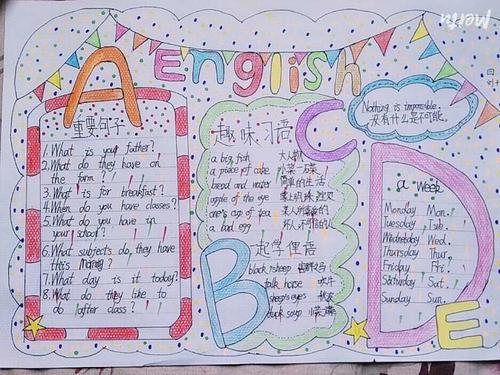 English
A
重要句子
1. What is your father?
2. What do they have on
the farm?
3. What is for breakfast?
4. When do you have classes?
5. What do you have in
your school?
6. What subjects do they have
this
7. What day is it today?
8. What do they like to
do after class?
B
趣味习语
a big fish 大人物
a piece of cake 小菜一碟
bread and water 简单的生活
apple of the eye
one's cup of tea
a bad egg
起学俚语
black sheep
talk horse 吹牛
sheep's eyes
duck soup
C
Nothing is impossible.
没有什么是不可能.
D
a week
Monday Mon.
Tuesday Tue.
Wednesday Wed.
Thursday Thur.
Friday Fri.
Saturday Sat.
Sunday Sun.
E